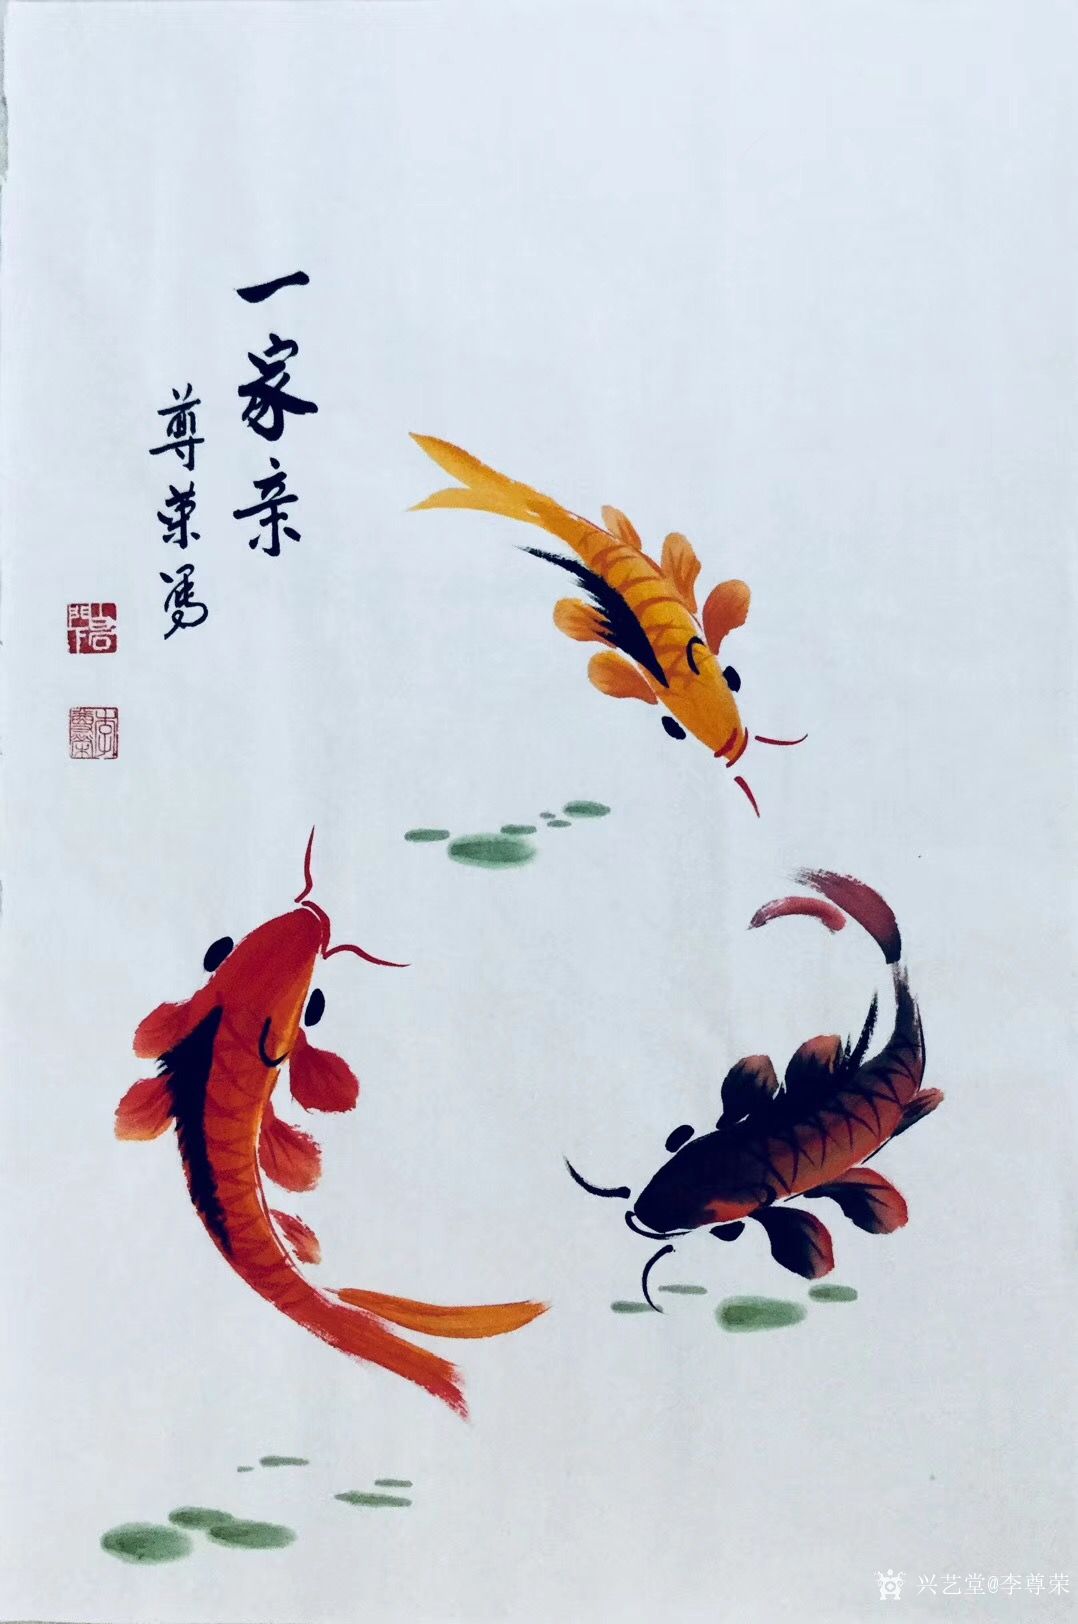 一家亲
尊荣写
李尊荣
兴艺堂@李尊荣